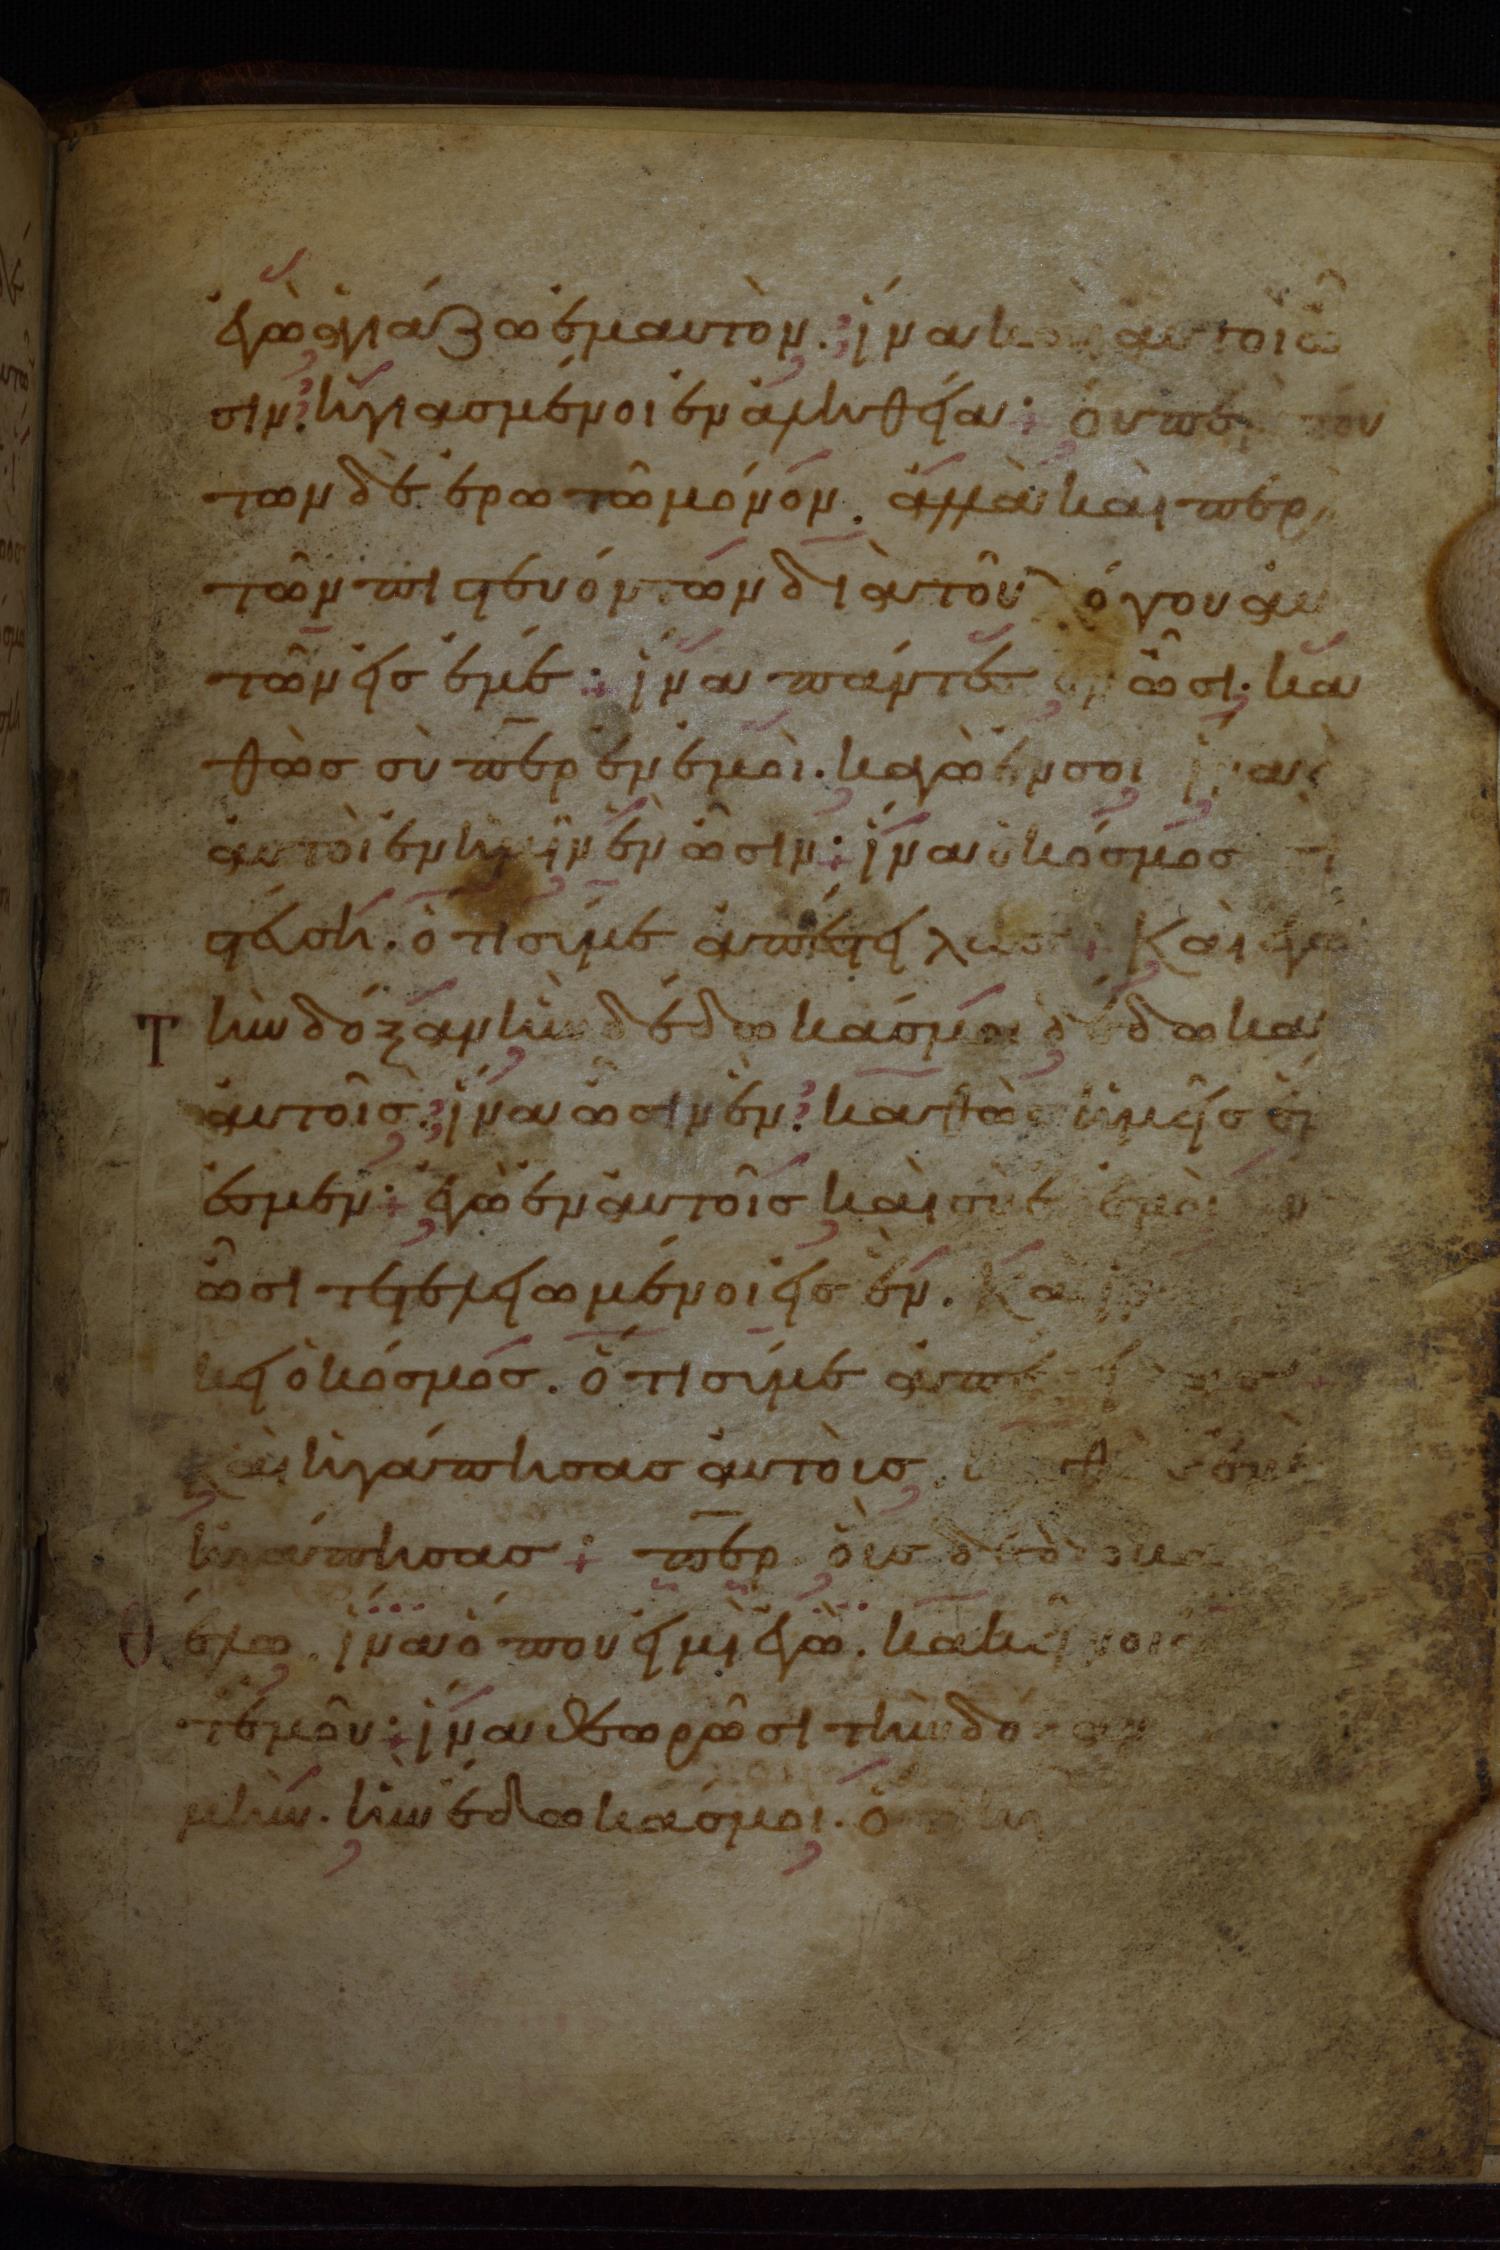 ἐγὼ ἁγιάζω ἐμαυτὸν. ἵνα καὶ αὐτοὶ ὦ
σιν. ἡγιασμένοι ἐν ἀληθεία· οὐ περὶ τού
των δὲ ἐρωτῶ μόνον. ἀλλὰ καὶ περὶ
τῶν πιστευόντων διὰ τοῦ λόγου αὐ
τῶν εἰς ἐμέ· ἵνα πάντες ἓν ὦσι. κα
θὼς σὺ περ ἐν ἐμοὶ. καγὼ ἐν σοι ἵνα καὶ
αὐτοὶ ἐν ἡμῖν ἓν ὦσιν· ἵνα ὁ κόσμος πι
στεύση. ὅτι σύ με ἀπέστειλας· Καὶ ἐγὼ
τὴν δόξαν ἣν δέδωκάς μοι δέδωκα
αὐτοῖς. ἵνα ὦσιν ἕν. καθὼς ἡμεῖς ἕν
ἐσμεν· ἐγὼ ἐν αὐτοῖς καὶ σὺ ἐν ἐμοὶ
ὦσι τετελειωμένοι εἰς ἕν. Καὶ
κει ὁ κόσμος. ὅτι σύ με
Καὶ ἠγάπησας αὐτοὺς
ἠγάπησας· περ οὓς δέδωκάς
θέλω. ἵνα ὅπου εἰμὶ ἐγὼ. κακεῖνοι
τ' ἐμοῦ· ἵνα θεωρῶσι τὴν δόξαν
μὴν. ἣν ἔδωκάς μοι. ὅτι ἠγ